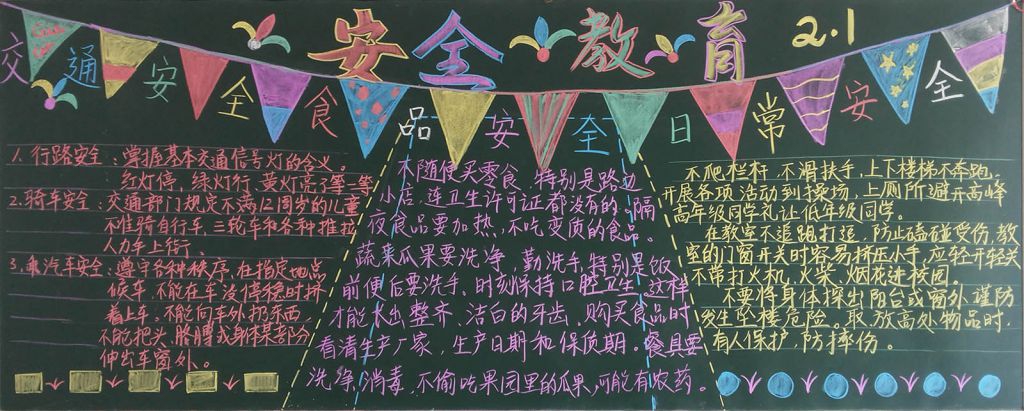 安全教育 2.1
交通安全 食品安全 日常安全
1. 行路安全：掌握基本交通信号灯的含义。
红灯停，绿灯行，黄灯亮了等一等
2. 骑车安全：交通部门规定不满12周岁的儿童
不准骑自行车，三轮车和各种推拉
人力车上街。
3. 乘汽车安全：遵守各种秩序，在指定地点
候车，不能在车没停稳时挤
着上车。不能向车外扔东西
不能把头、胳膊或身体某部分
伸出车窗外。
不随便买零食，特别是路边
小店，连卫生许可证都没有的。隔
夜食品要加热，不吃变质的食品。
蔬菜瓜果要洗净，勤洗手，特别是饭
前便后要洗手。时刻保持口腔卫生。这样
才能长出整齐、洁白的牙齿。购买食品时
看清生产厂家，生产日期和保质期。餐具要
洗净，消毒，不偷吃果园里的瓜果，可能有农药。
不爬栏杆，不滑扶手，上下楼梯不奔跑。
开展各项活动到操场，上厕所避开高峰
高年级同学礼让低年级同学。
在教室不追跑打逗，防止磕碰受伤，教
室的门窗开关时容易挤压小手，应轻开轻关
不带打火机，火柴，烟花进校园。
不要将身体探出阳台或窗外谨防
发生坠楼危险。取，放高处物品时，
有人保护，防摔伤。